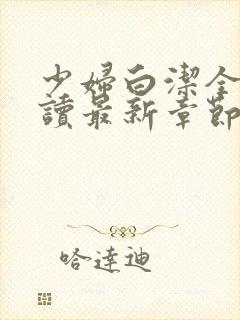 少婦白潔全
讀最新章節
哈達迪